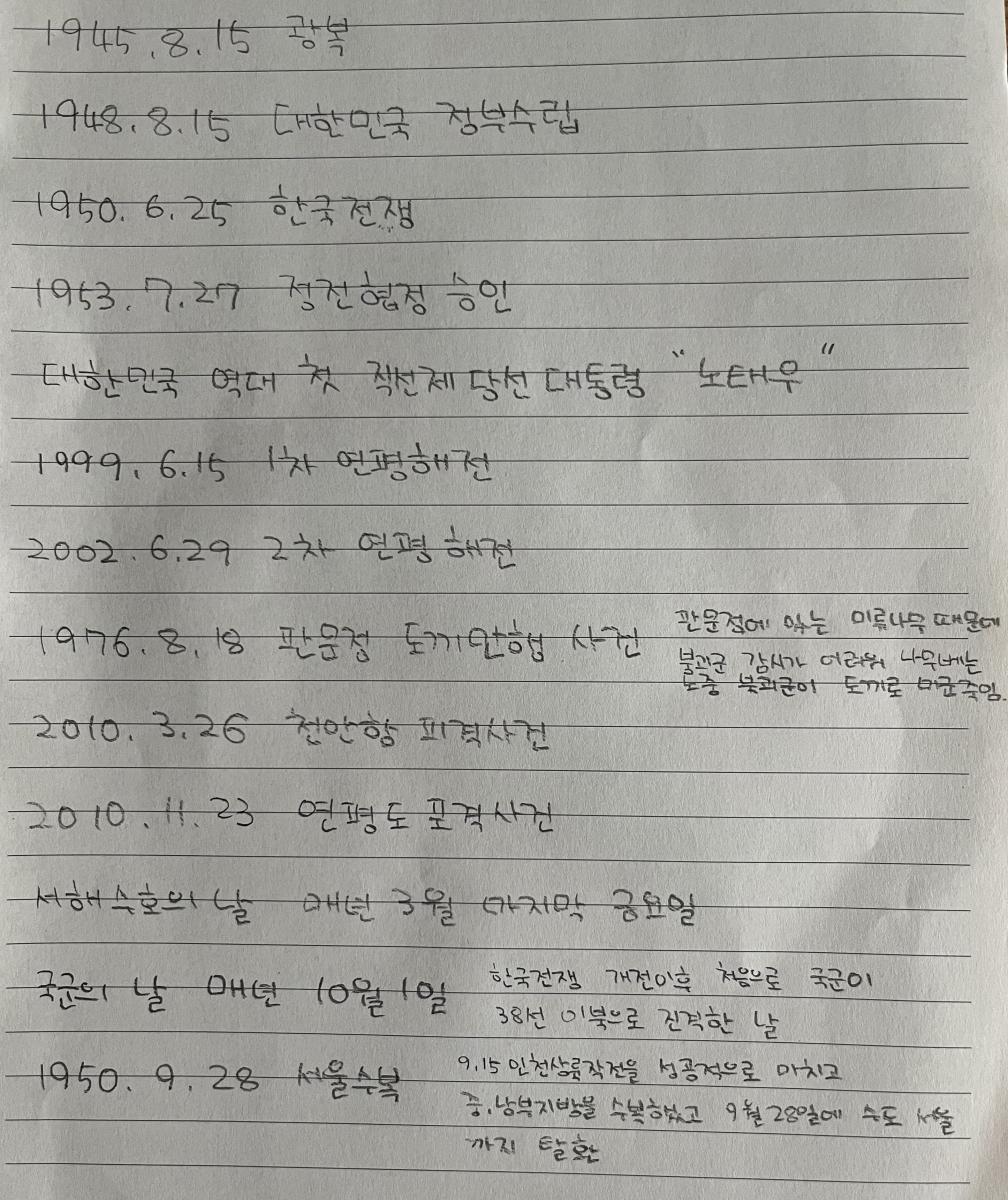 1945.8.15 광복
1948.8.15 대한민국 정부수립
1950.6.25 한국전쟁
1953.7.27 정전협정 승인
대한민국 역대 첫 직선제 당선 대통령 "노태우"
1999.6.15 1차 연평해전
2002.6.29 2차 연평해전
1976.8.18 판문점 도끼만행 사건
판문점에 있는 미류나무 때문에
북괴군 감시가 어려워 나무베는
도중 북괴군이 도끼로 미군죽임.
2010.3.26 천안함 피격사건
2010.11.23 연평도 포격사건
서해수호의 날 매년 3월 마지막 금요일
국군의 날 매년 10월 1일
한국전쟁 개전이후 처음으로 국군이
38선 이북으로 진격한 날
1950.9.28 서울수복
9.15 인천상륙작전을 성공적으로 마치고
중,남부지방을 수복하였고 9월 28일에 수도 서울
까지 탈환